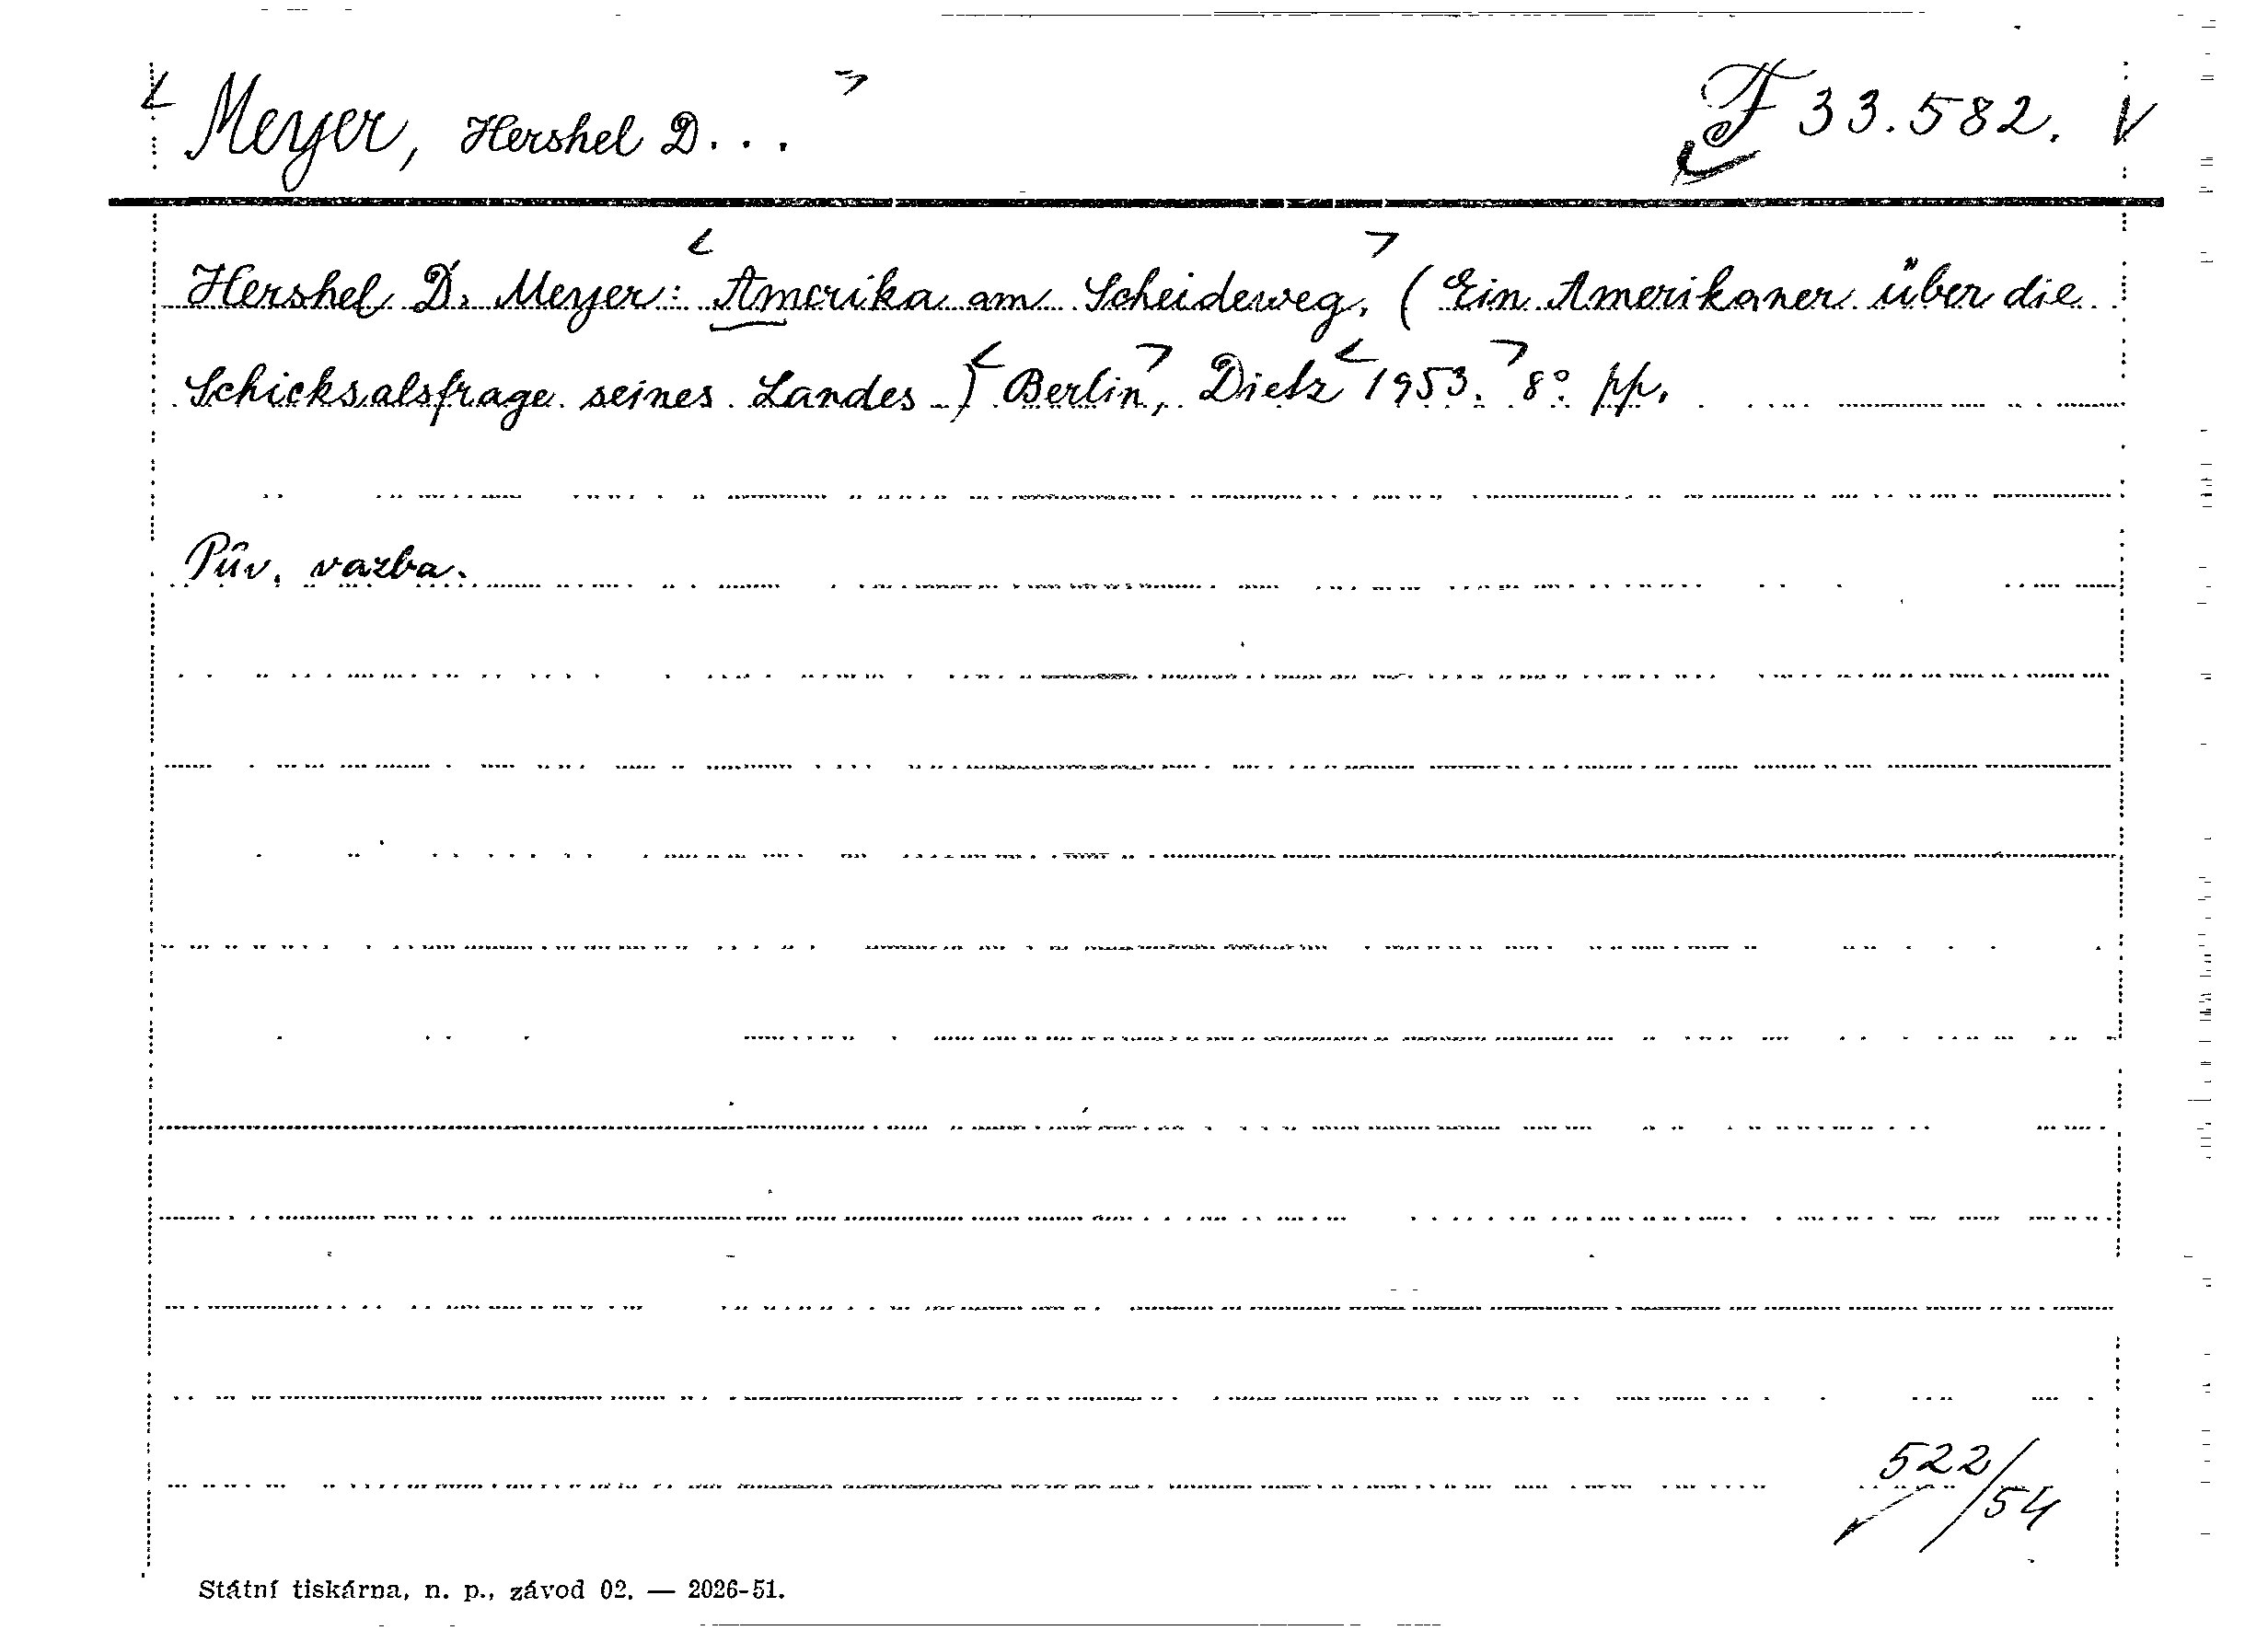 < Meyer, Hershel D... > F 33.582. V
Hershel D. Meyer: < Amerika am Scheideweg. > (Ein Amerikaner über die
Schicksalsfrage seines Landes) < Berlin >, Dietz < 1953. > 8° pp.
Pův. vazba.
522/54
Státní tiskárna, n. p., závod 02. — 2026-51.